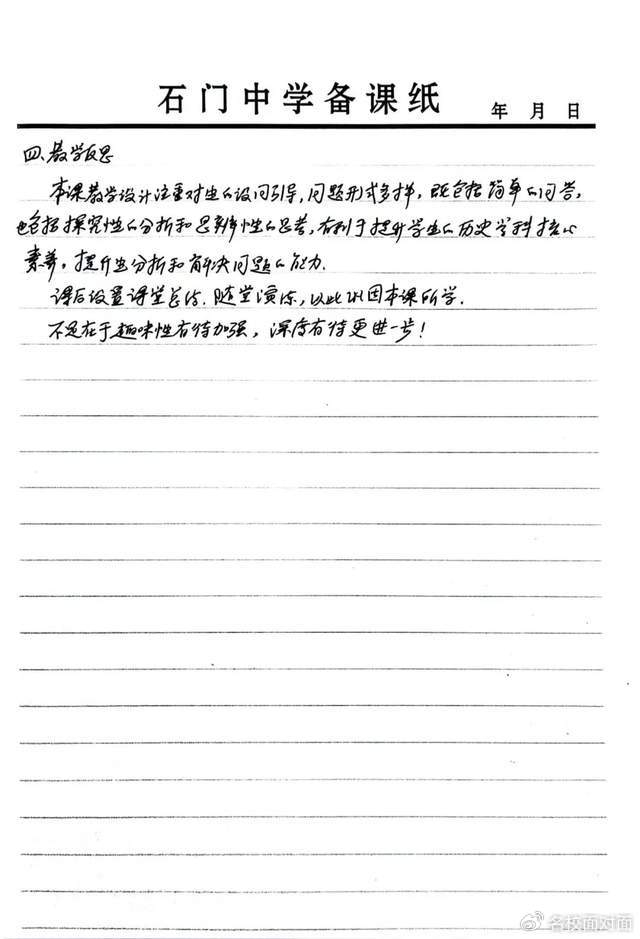 石门中学备课纸 年 月 日
四、教学反思
本课教学设计注重对生的设问引导,问题形式多样,既包括简单的问答,
也包括探究性的分析和思辨性的思考,有利于提升学生的历史学科核心
素养,提升生分析和解决问题的能力.
课后设置课堂总结.随堂演练,以此巩固本课所学.
不足在于趣味性有待加强,深度有待更进一步!
名校面对面